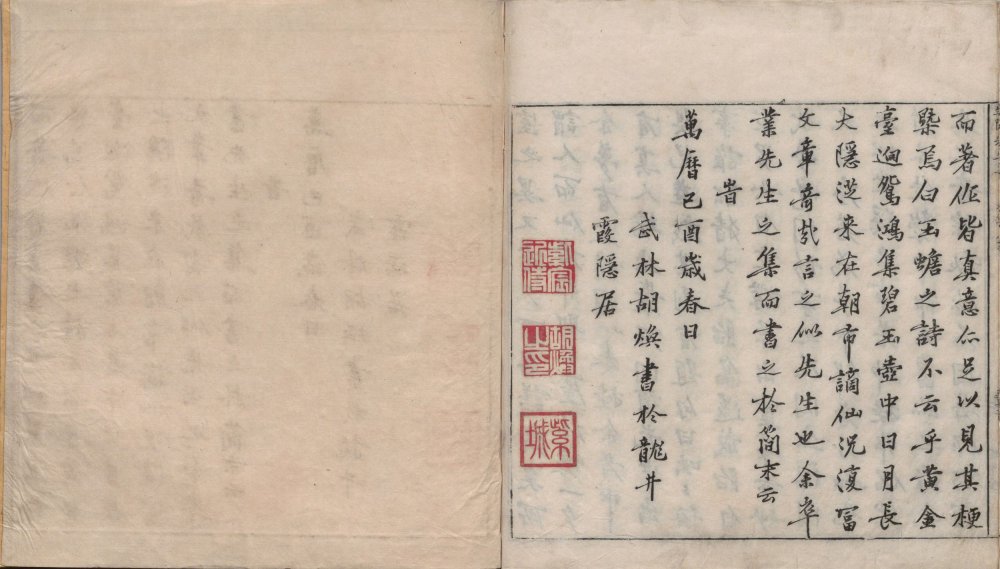 而著作皆真意亦足以見其梗
槩焉白玉蟾之詩不云乎黃金
臺迥鴛鴻集碧玉壺中日月長
大隱從來在朝市謫仙況復冨
文章奇哉言之似先生也余卒
業先生之集而書之於簡末云
旹
萬曆己酉歲春日
武林胡煥書於龍井
霞隱居
胡煥之印
紫城